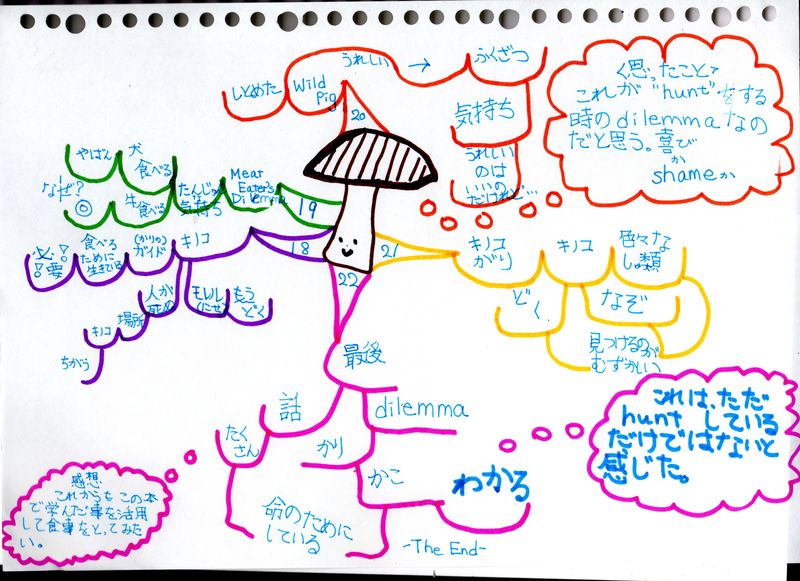 うれしい →
ふくざつ
しとめた
Wild
Pig
20
気持ち
うれしい
のは
いいの
だけれど…
く思ったこと>
これが"hunt"をする
時のdilemmaなの
だと思う。喜び
か
shameか
やばん
犬
食べる
なぜ?
◎
牛
食べる
たんじゅん
気持ち
Meat
Eater's
Dilemma
19
18
キノコ
(かりの)
ガイド
食べる
ために
生きている
必!
!要
人が
死ぬ
モレル
(にせ)
もう
どく
場所
キノコ
ちがう
21
キノコ
がり
キノコ
色々な
しゅ類
どく
なぞ
見つけるのが
むずかしい
22
最後
話
dilemma
たく
さん
かり
かこ
わかる
命のために
している
-The End-
これは、ただ
hunt している
だけではないと
感じた。
感想
これからもこの本
で学んだ事を活用
して食事をとってみた
い。